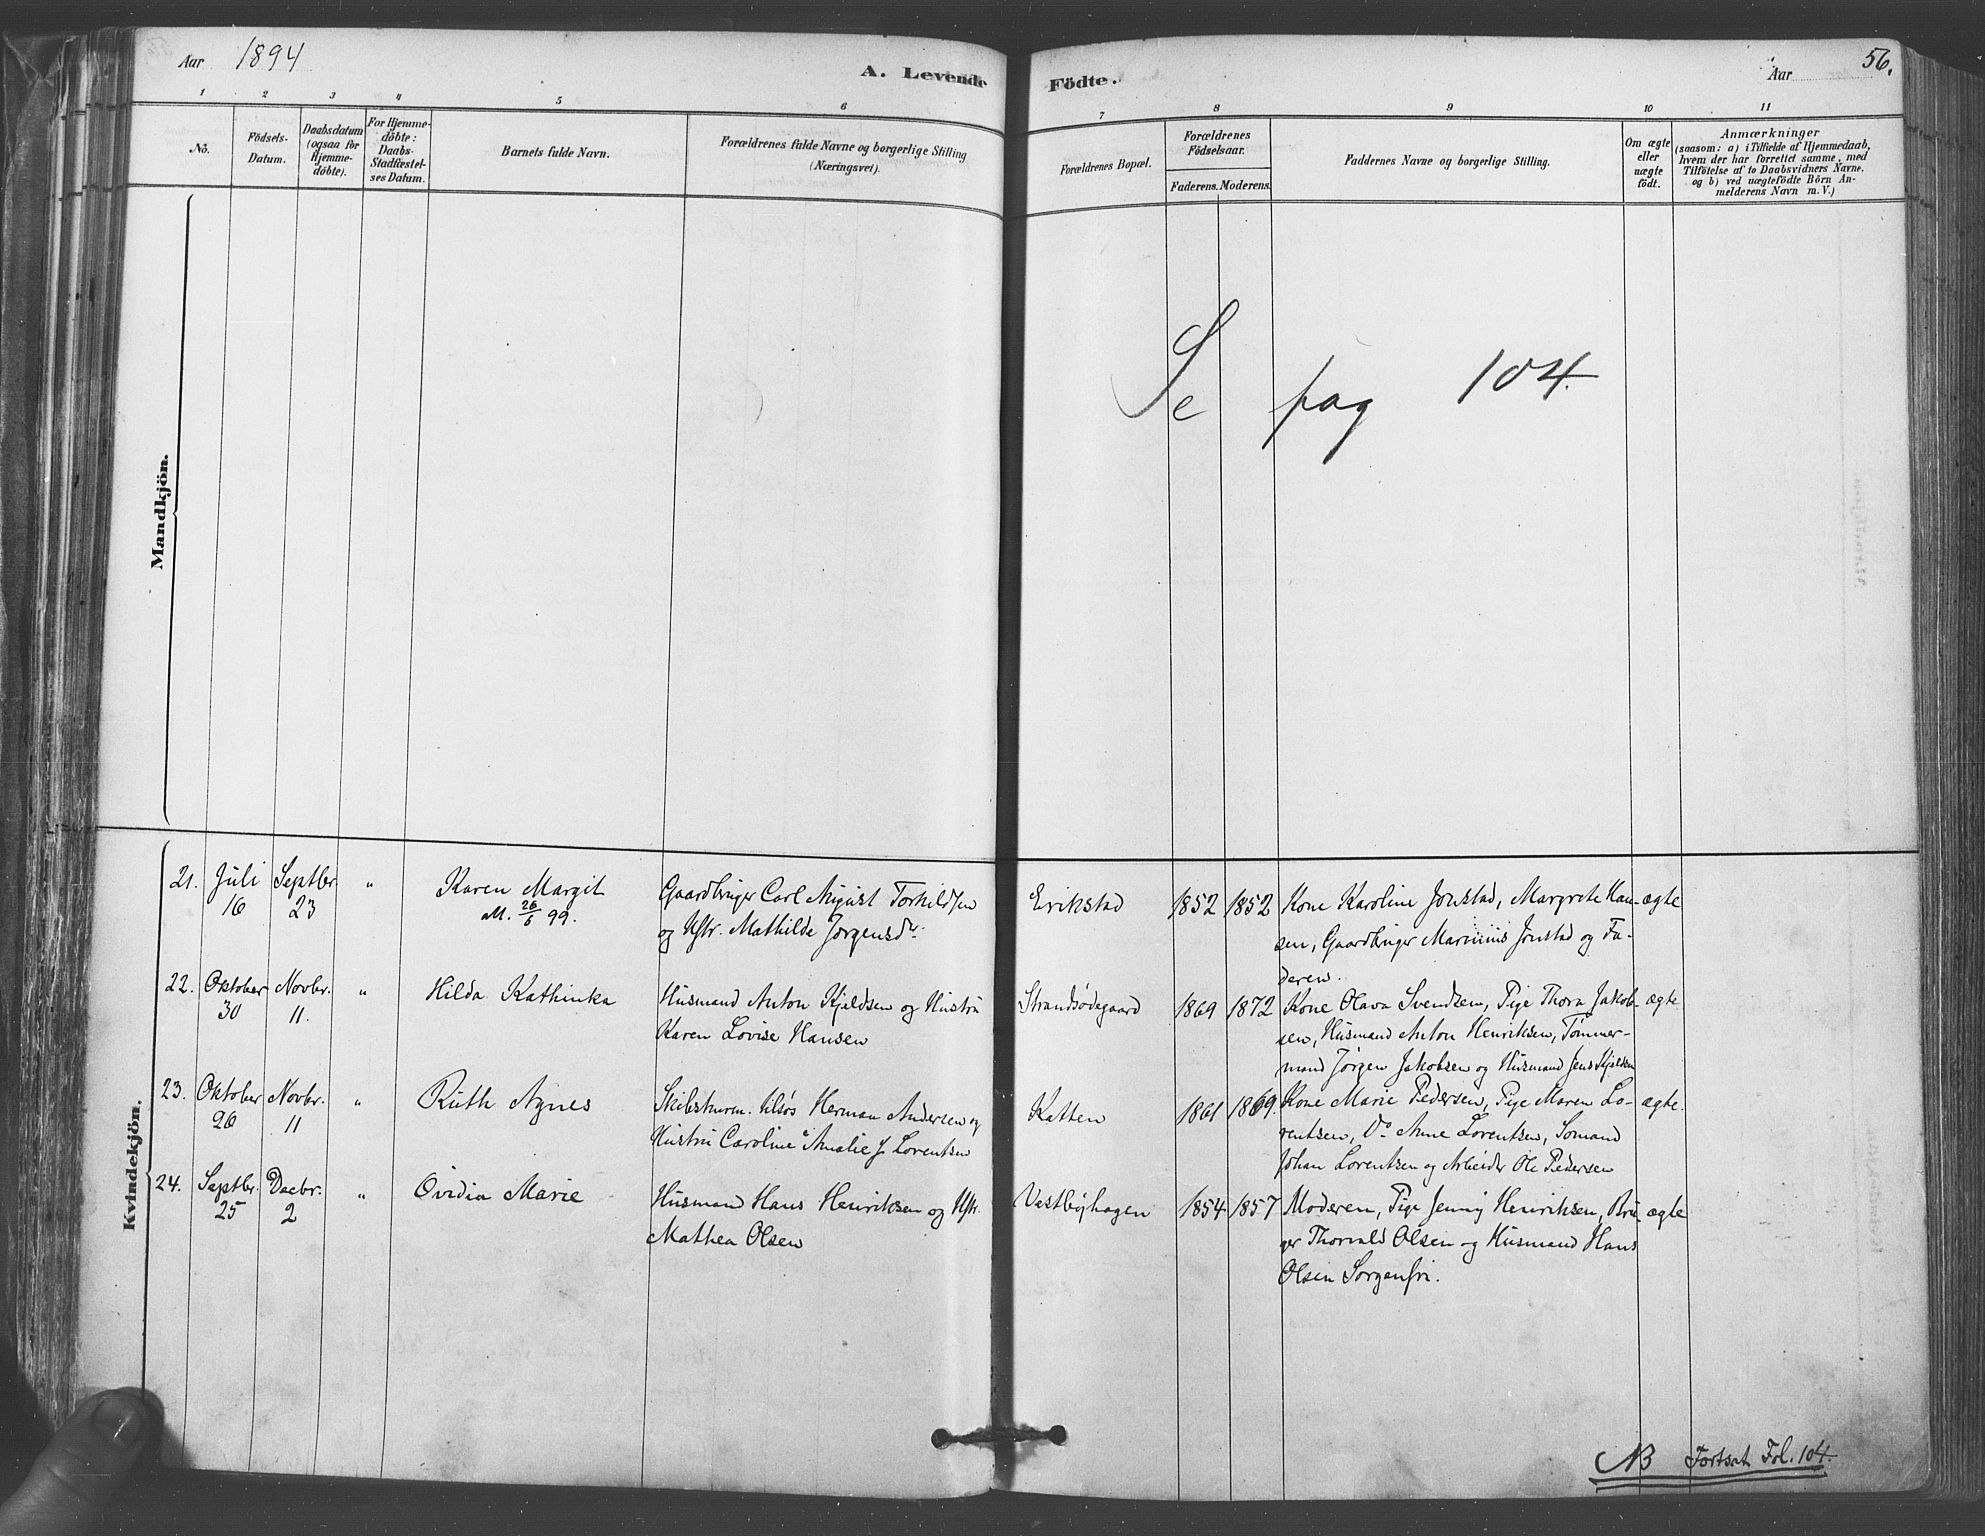 Aar 1894
A. Levende Födte.
Aar 56.
1 2 3 4 5 6 7 8 9 10 11
No.
Födsels-
Datum.
Daabsdatum
(ogsaa for
Hjemme-
döbte).
For Hjemme-
döbte:
Daabs-
Stadfæstel-
ses Datum.
Barnets fulde Navn.
Forældrenes fulde Navne og borgerlige Stilling
(Næringsvei).
Forældrenes Bopæl.
Forældrenes
Födselsaar.
Faderens. Moderens.
Faddernes Navne og borgerlige Stilling.
Om ægte
eller
uægte
födt.
Anmærkninger
(saasom: a) i Tilfælde af Hjemmedaab,
hvem der har forrettet samme, med
Tilföielse af to Daabsvidners Navne,
og b) ved uægtefödte Börn An-
melderens Navn m. V.)
Mandkjön.
Se pag 104.
Kvindekjön.
21. Juli 16 Septbr. 23 " Karen Margit
M. 26/6 99.
Gaardbruger Carl August Torkildsen
og Hstr. Mathilde Jørgensd.
Erikstad 1852 1852
Kone Karoline Jonstad, Margrete Han-
sen, Gaardbruger Marinius Jonstad og Fa-
deren.
ægte
22. Oktober 30 Novbr. 11. " Hilda Kathinka
Husmand Anton Kjeldsen og Hustru
Karen Lovise Hansen
Strandsødegaard 1869 1872
Kone Olava Svendsen, Pige Thora Jakob-
sen, Husmand Anton Henriksen, Tømmer-
mand Jørgen Jakobsen og Husmand Jens Kjeldsen
ægte
23. Oktober 26 Novbr. 11 " Ruth Agnes
Skibstørm. tilsøs Herman Andersen og
Hustru Caroline Amalie J Lorentsen
Katten 1861 1869.
Kone Marie Pedersen, Pige Maren Lo-
rentsen, Do Anne Lorentsen, Sømand
Johan Lorentsen og Arbeider Ole Pedersen
ægte.
24. Septbr. 25 Decbr. 2 " Ovidia Marie
Husmand Hans Henriksen og Hstr.
Mathea Olsen
Vestbyhagen 1854 1857
Moderen, Pige Jenny Henriksen, Bru-
ger Thorvald Olsen og Husmand Hans
Olsen Sorgenfri.
ægte
NB Fortsat Fol. 104.